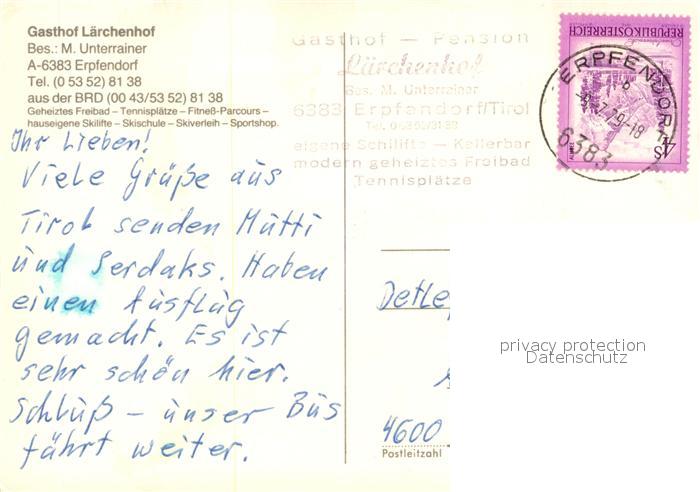 Gasthof Lärchenhof
Bes.: M. Unterrainer
A-6383 Erpfendorf
Tel. (0 53 52) 81 38
aus der BRD (00 43/53 52) 81 38
Geheiztes Freibad – Tennisplätze – Fitneß-Parcours –
hauseigene Skilifte – Skischule – Skiverleih – Sportshop.
Gasthof – Pension
Lärchenhof
Bes. M. Unterrainer
6383 Erpfendorf/Tirol
eigene Schilifte – Kellerbar
modern geheiztes Freibad
Tennisplätze
REPUBLIK ÖSTERREICH
4S
ERPFENDORF
6383
Ihr Lieben!
Viele Grüße aus
Tirol senden Mutti
und Serdaks. Haben
einen Ausflug
gemacht. Es ist
sehr schön hier.
Schluß – unser Bus
fährt weiter.
Detle
4600
Postleitzahl
privacy protection
Datenschutz